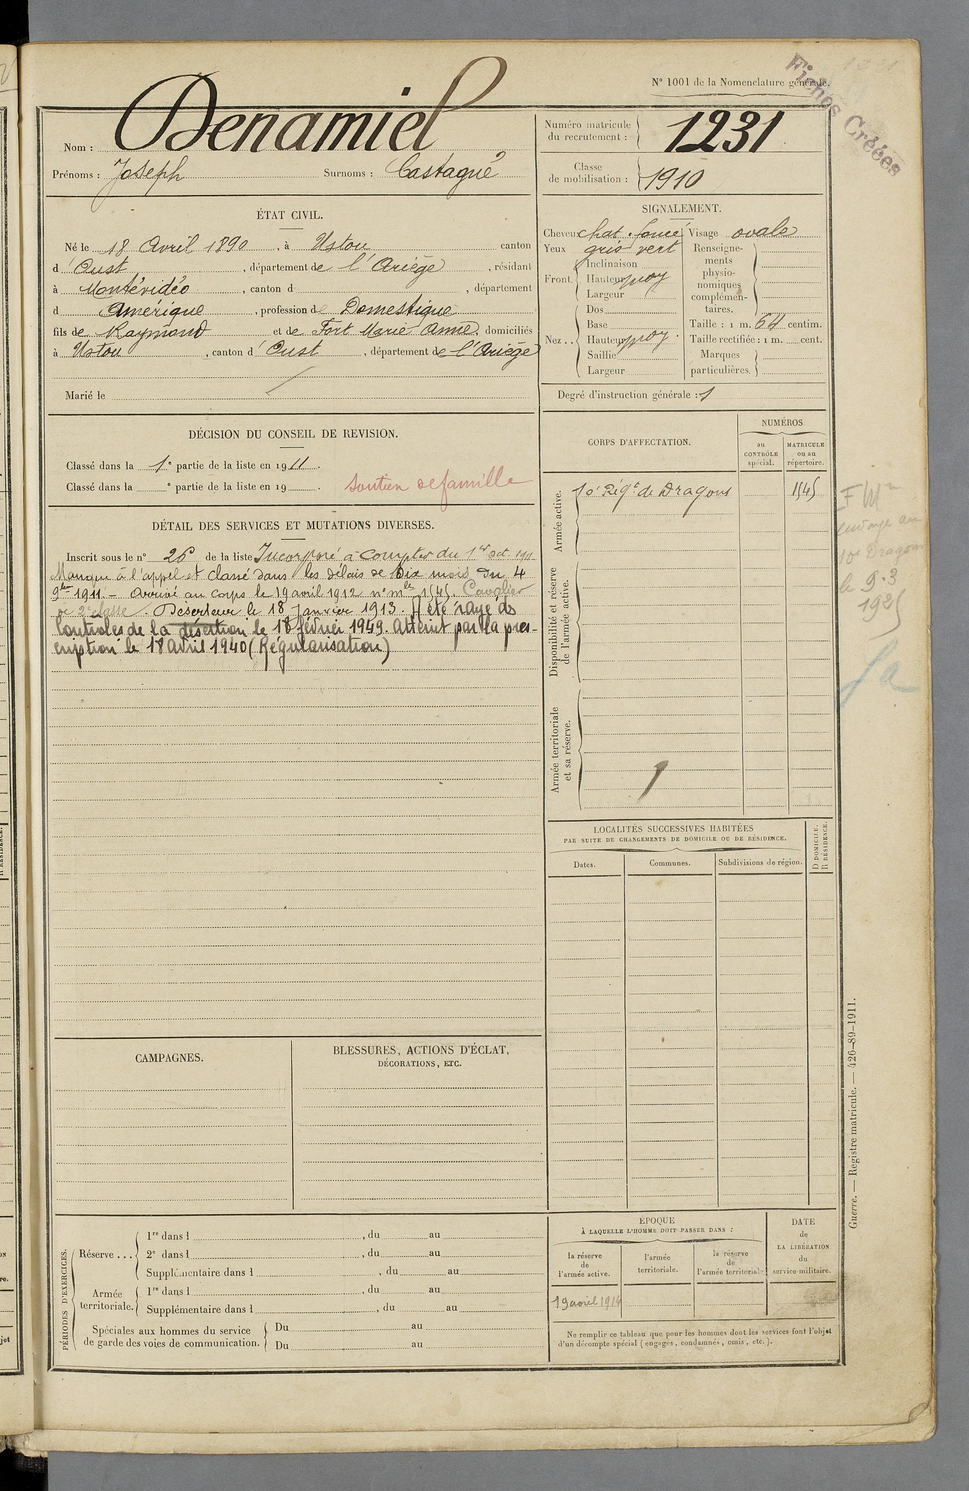 N° 1001 de la Nomenclature générale.
Fiches Créées
Nom : Denamiel
Prénoms : Joseph Surnoms : Castagné
Numéro matricule du recrutement : 1231
Classe de mobilisation : 1910
ÉTAT CIVIL.
Né le 18 Avril 1890, à Ustou canton
d'Oust, département de l'Ariège, résidant
à Montévidéo, canton d , département
d Amérique, profession de Domestique
fils de Raymond et de Fort Marie Anne, domiciliés
à Ustou, canton d'Oust, département de l'Ariège
Marié le
SIGNALEMENT.
Cheveux chat. foncé Visage ovale
Yeux gris vert Renseignements physionomiques complémentaires.
Front. Inclinaison
Hauteur moy
Largeur
Nez.. Dos
Base
Hauteur moy.
Saillie
Largeur
Taille : 1 m. 64 centim.
Taille rectifiée : 1 m. cent.
Marques particulières.
Degré d'instruction générale : 1
DÉCISION DU CONSEIL DE REVISION.
Classé dans la 1e partie de la liste en 1911.
Classé dans la e partie de la liste en 19 .
soutien de famille
DÉTAIL DES SERVICES ET MUTATIONS DIVERSES.
Inscrit sous le n° 26 de la liste Incorporé à compter du 1er oct. 1911
Manque à l'appel et classé dans les délais de Dix mois du 4
9bre 1911. - Arrivé au corps le 19 avril 1912 n° mle 1545. Cavalier
de 2e classe. Déserteur le 18 Janvier 1913. A été rayé des
Controles de la désertion le 18 février 1949. Atteint par la pres-
cription le 18 Avril 1940 (Régularisation)
CORPS D'AFFECTATION.
NUMÉROS
au CONTRÔLE spécial.
MATRICULE ou au répertoire.
Armée active.
10e Régt de Dragons 1545
Disponibilité et réserve de l'armée active.
Armée territoriale et sa réserve.
envoyé au
10e Dragons
le 9.3
1925
LOCALITÉS SUCCESSIVES HABITÉES
PAR SUITE DE CHANGEMENTS DE DOMICILE OU DE RÉSIDENCE.
Dates. Communes. Subdivisions de région. D DOMICILE. R RÉSIDENCE.
CAMPAGNES.
BLESSURES, ACTIONS D'ÉCLAT,
DÉCORATIONS, ETC.
PÉRIODES D'EXERCICES.
Réserve ... 1re dans l , du au
2e dans l , du au
Supplémentaire dans l , du au
Armée territoriale. 1re dans l , du au
Supplémentaire dans l , du au
Spéciales aux hommes du service de garde des voies de communication. Du au
Du au
ÉPOQUE
À LAQUELLE L'HOMME DOIT PASSER DANS :
la réserve de l'armée active.
l'armée territoriale.
la réserve de l'armée territoriale.
DATE de LA LIBÉRATION du service militaire.
19 avril 1914
Ne remplir ce tableau que pour les hommes dont les services font l'objet
d'un décompte spécial (engagés, condamnés, omis, etc.).
Guerre. — Registre matricule. — 426-89-1911.